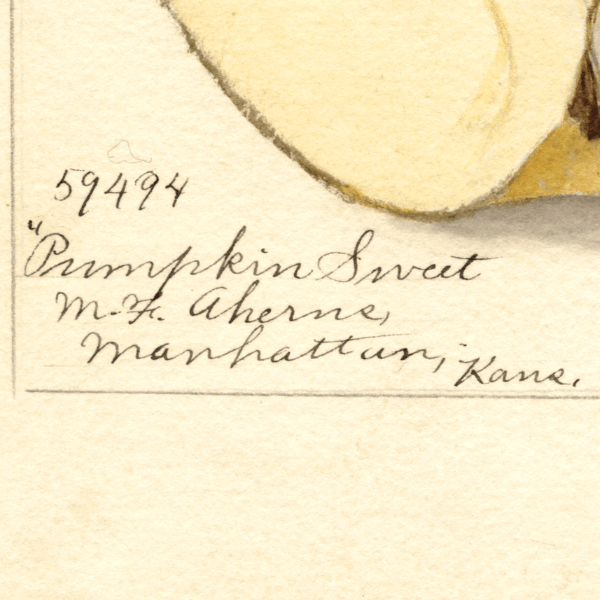 59494
"Pumpkin Sweet
M. F. Aherns,
Manhattan, Kans.